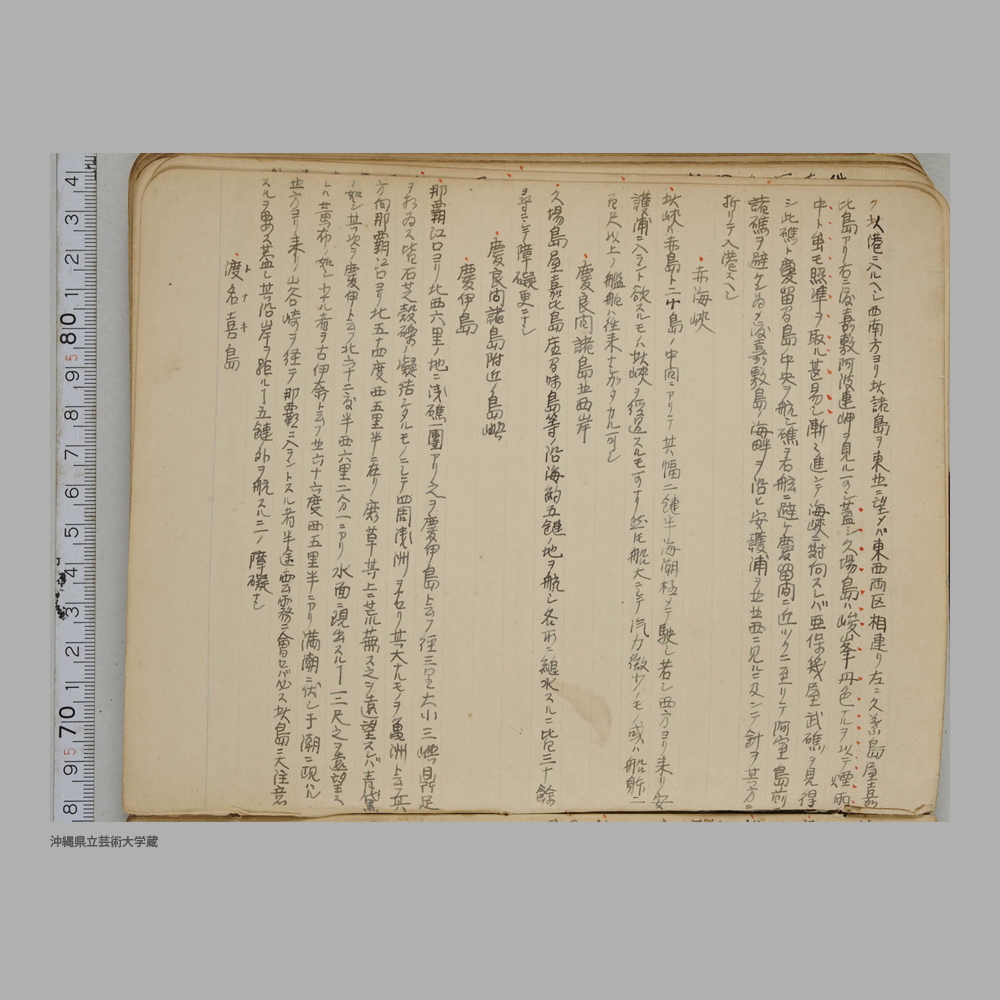 ク此港ニ入ルヘシ西南方ヨリ此諸島ヲ東北ニ望メバ東西両区相連リ左ニ久場島屋嘉
比島アリ右ニ渡嘉敷阿波連岬ヲ見ル可シ蓋シ久場島ハ峻峯丹色ナルヲ以テ煙雨
中ト雖モ照準ヲ取ル甚易シ漸々進ンテ海峡ニ対向スレバ亜保幾屋武礁ヲ見得
シ此礁ト慶留間島ノ中央ヲ航シ礁ヲ右舷ニ避ケ慶留間ニ近ツクニ至リテ阿室島前
諸礁ヲ避ケンガ為メ渡嘉敷島ノ海畔ヲ沿ヒ安護浦ヲ北北西ニ見ルニ及ンテ針ヲ其方ニ
折リテ入港スヘシ
赤海峡
此峡ハ赤島トニ島ノ中間ニアリテ其幅二鏈半海潮極メテ駛シ若シ西方ヨリ来リ安
護浦ニ入ラント欲スルモノハ此峡ヲ経過スルモ可ナリ然トモ船大ニシテ汽力微少ノモノ或ハ船躰二
百尺以上ノ艦船ハ往来ナカル可シ
慶良間諸島北西岸
久場島屋嘉比島座間味島等ノ沿海約五鏈ノ地ヲ航シ各所ニ錘水スルニ皆三十餘
尋ニシテ障礙更ニナシ
慶良間諸島附近ノ島嶼
慶伊島
那覇江口ヨリ北西六里ノ地ニ浅礁一團アリ之ヲ慶伊島ト云フ径三里大小三嶼鼎足
ヲ為ス皆石芝殻礫ノ凝結シタルモノニシテ四周浅洲ヲナセリ其大ナルモノヲ亀洲ト云フ其
方向那覇江口ヨリ北五十四度西五里半ニ在リ磨草其上ニ荒蕪ス之ヲ遠望スレバ青黛
ノ如シ其次ヲ慶伊ト云フ北六十二度半西六里二分一ニアリ水面ニ現出スル丁一二尺之ヲ遠望ス
レハ黄布ノ如シ小ナル者ヲ古伊奈ト云フ北六十六度西五里半ニアリ満潮ニ伏シ干潮ニ現ハル
北方ヨリ来リ山谷崎ヲ経テ那覇ニ入ラントスル者半途雲霧ニ會セバ必ス此島ニ大注意
スルヲ要ス蓋シ其沿岸ヲ距ル丁五鏈外ヲ航スルニハ障礙ナシ
渡名喜島
トナキ